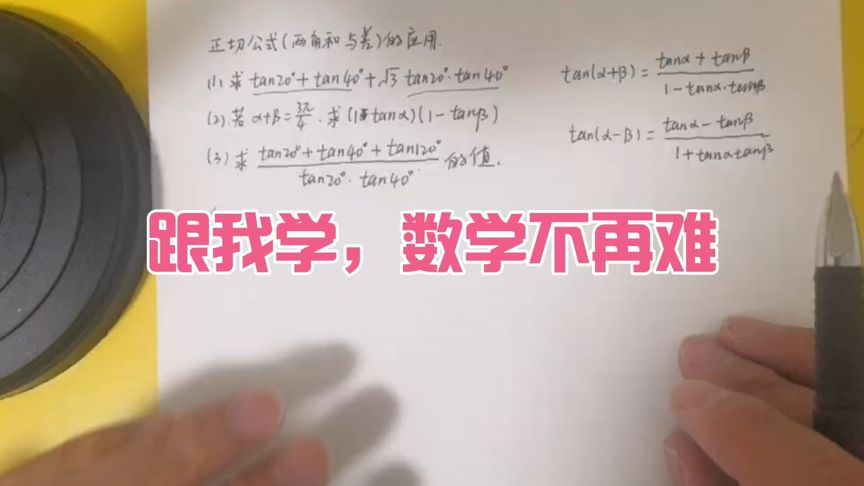 正切公式(两角和与差)的应用.
(1) 求 tan20°+tan40°+√3 tan20°·tan40°
(2) 若 α+β=3π/4. 求 (1-tanα)(1-tanβ)
(3) 求 (tan20°+tan40°+tan120°)/(tan20°·tan40°) 的值.
tan(α+β) = (tanα+tanβ)/(1-tanα·tanβ)
tan(α-β) = (tanα-tanβ)/(1+tanαtanβ)
跟我学，数学不再难